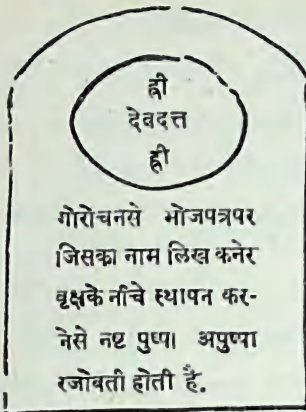 ह्री
देवदत्त
ह्री
गोरोचनसे भोजपत्रपर
जिसका नाम लिख कनेर
वृक्षके नीचे स्थापन कर-
नेसे नष्ट पुष्पा अपुष्पा
रजोवती होती है.